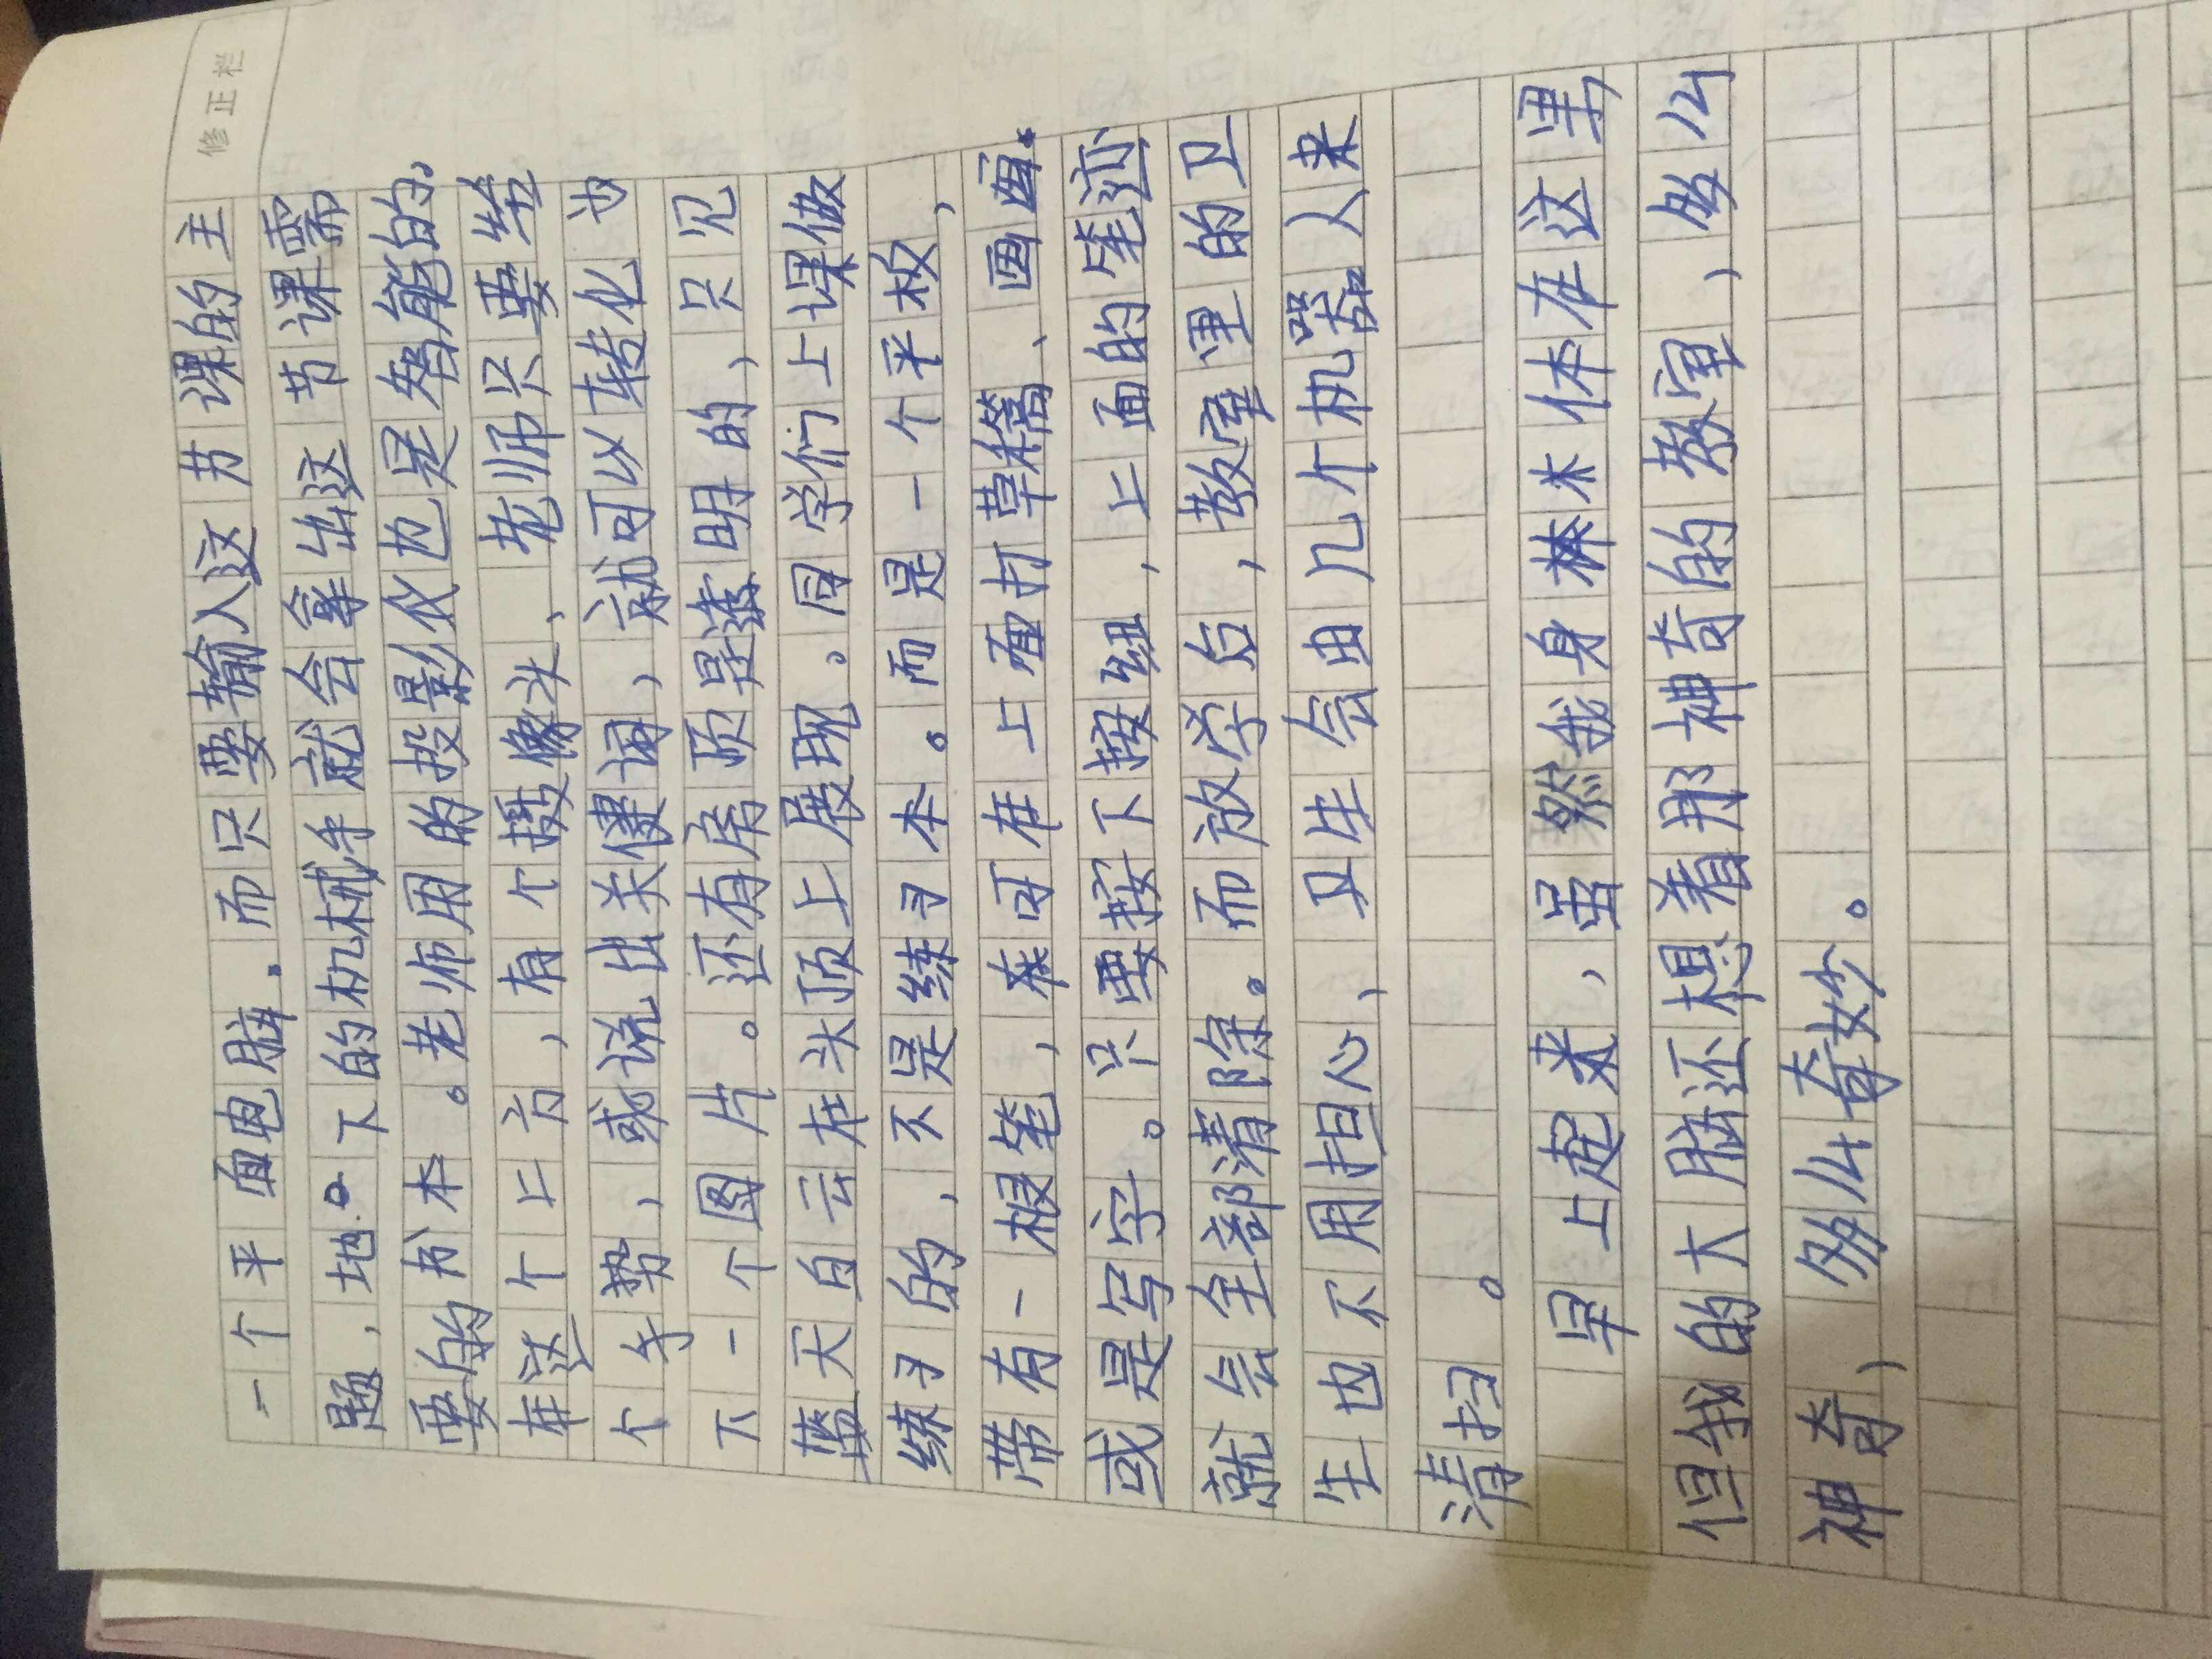 修正栏
一个平面电脑.而只要输入这节课的主
题,地下的机械手就会拿出这节课需
要的书本。老师用的投影仪也是智能的,
在这个上方,有个摄像头、老师只要给
个手势,或说出关健词,就可以转化为
下一个图片。还有房顶是透明的,只见
蓝天白云在头顶上展现。同学们上课做
练习的,不是练习本。而是一个平板,
带有一根笔,在可在上面打草稿、画画.
或是写字。只要按下按纽,上面的笔迹
就会全部清除。而放学后,教室里的卫
生也不用担心,卫生会由几个机器人来
清扫。
早上起来,虽然我身体在这里,
但我的大脑还想着那神奇的教室,多么
神奇,多么奇妙。